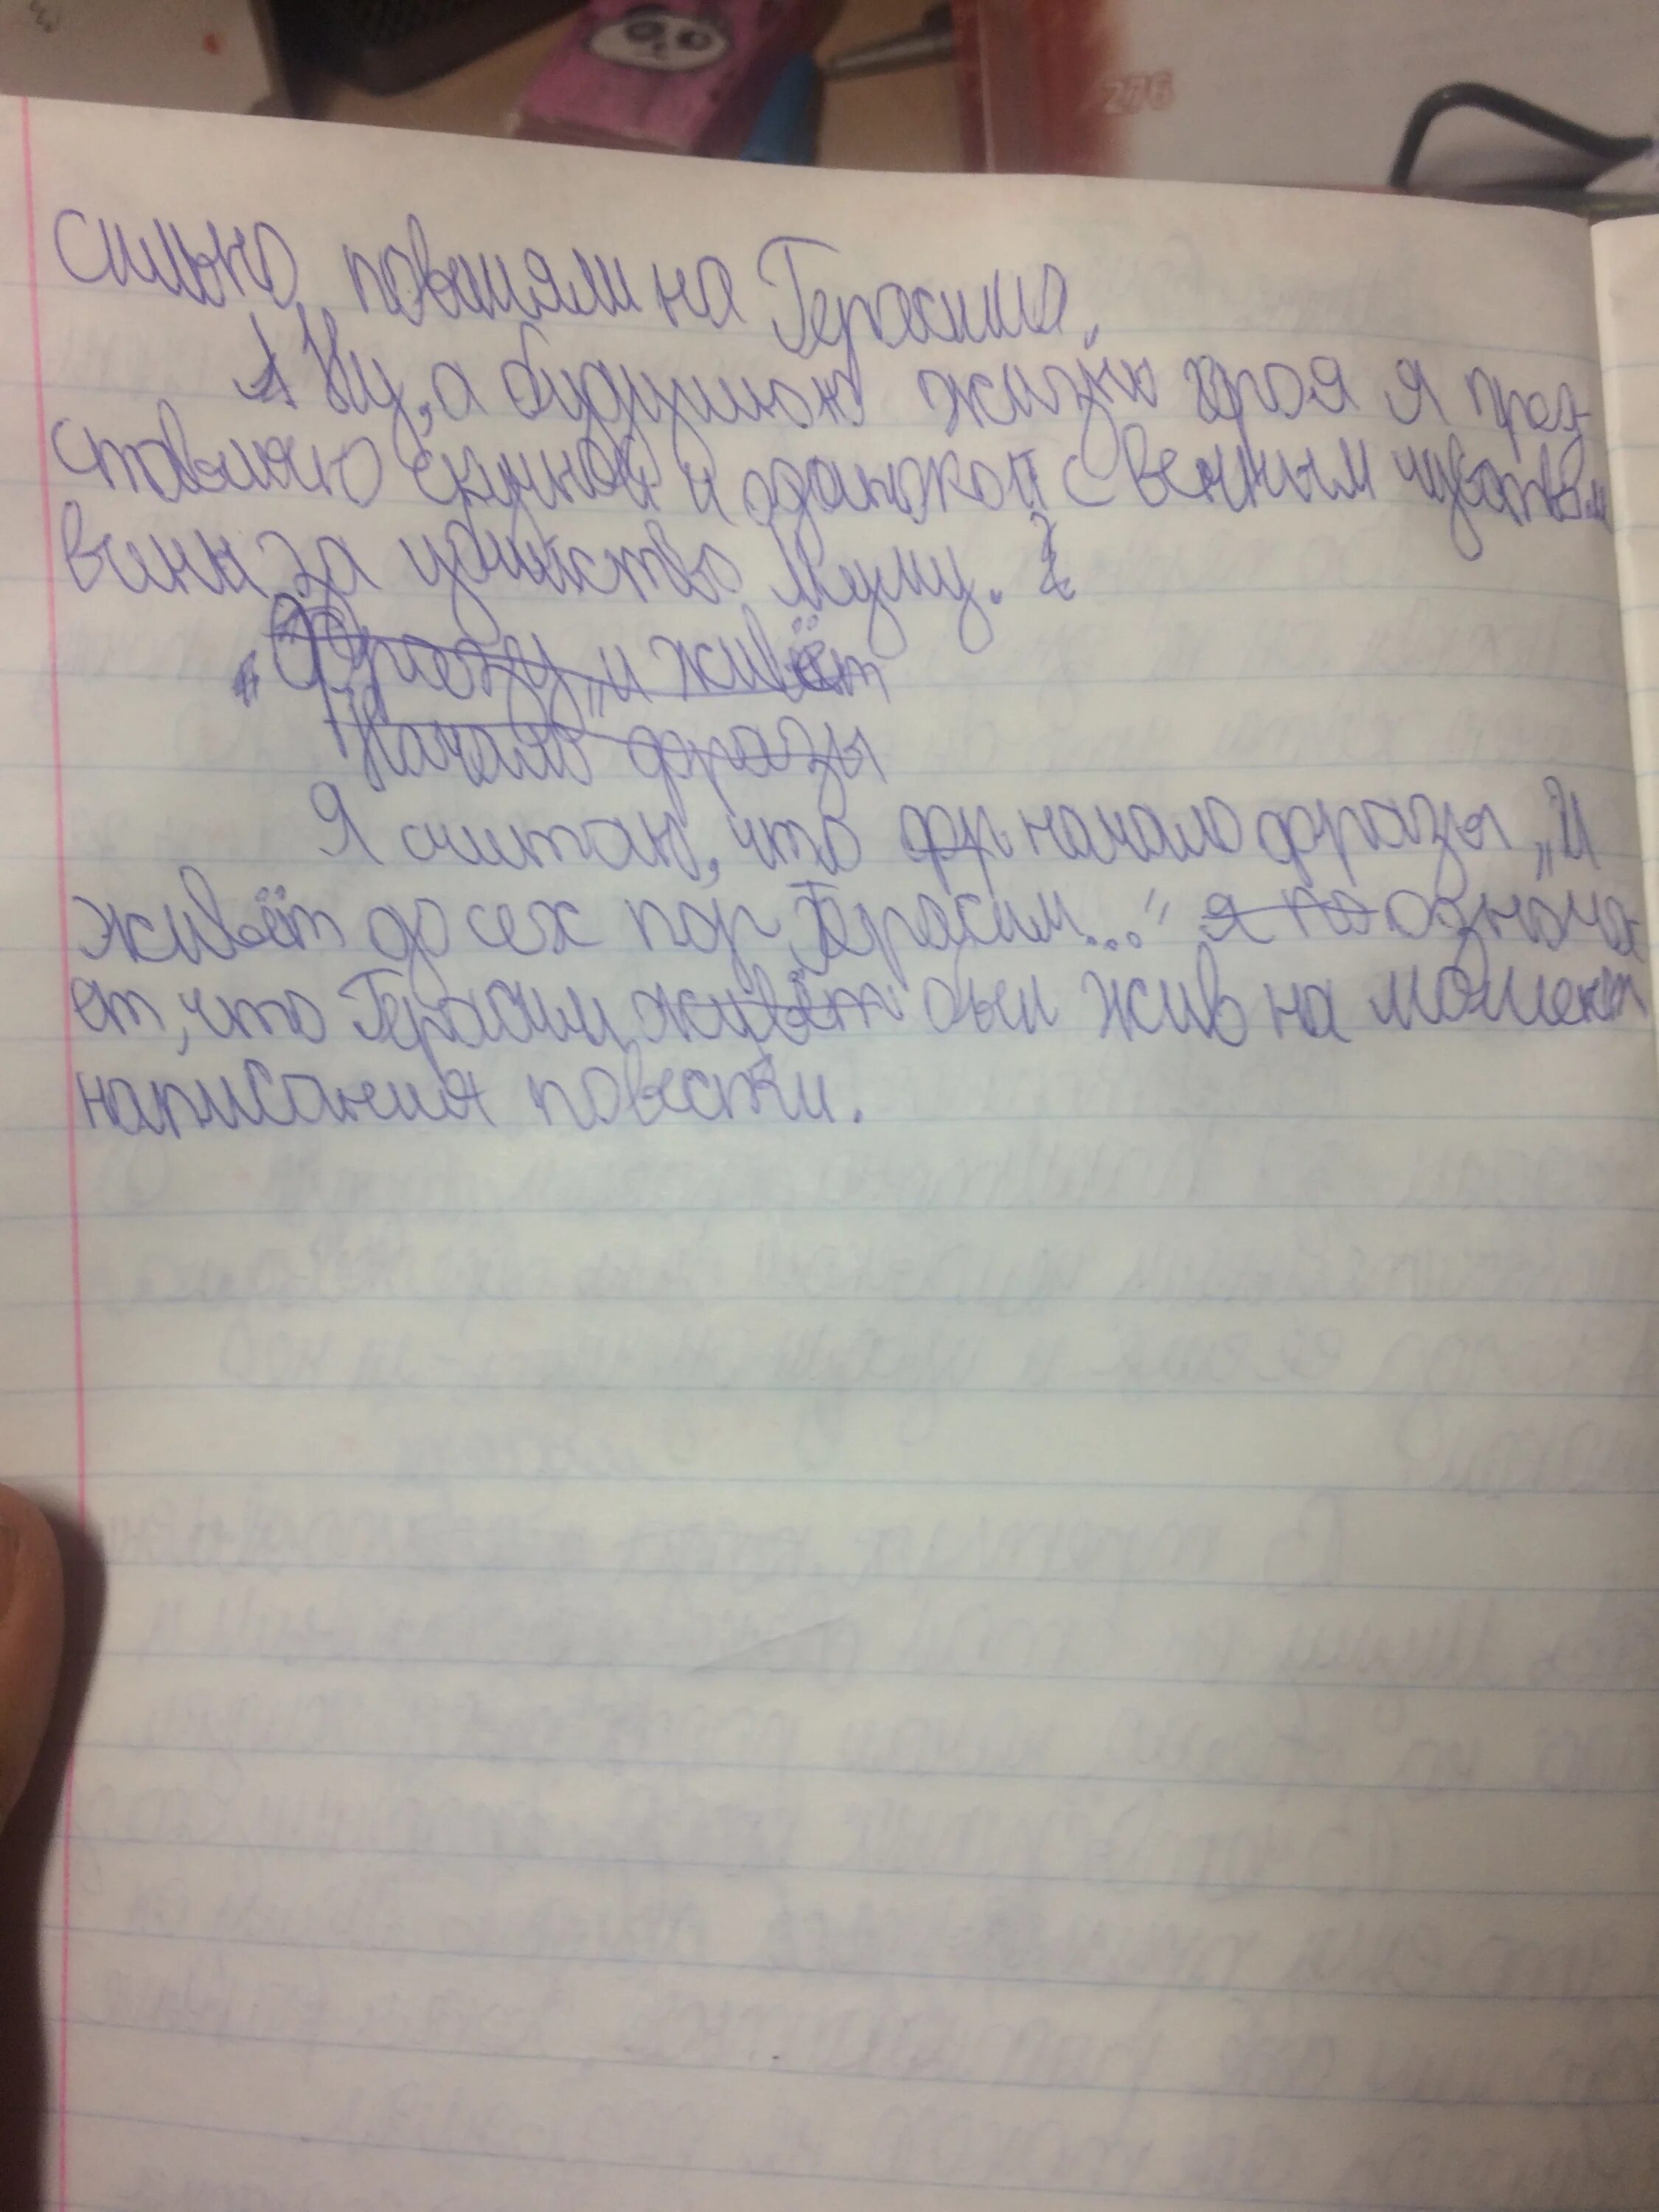 276
сильно повлияли на Герасима.
Ну, а будущую жизнь героя я пред-
ставляю скучной и одинокой с вечным чувством
вины за убийство Муму.
„Фразу „и живёт
Начало фразы
Я считаю, что фр начало фразы „И
живёт до сех пор Герасим..." я по означа-
ет, что Герасим живёт был жив на момент
написания повести.